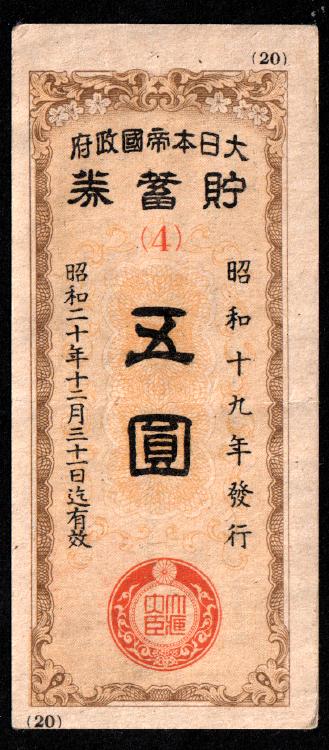 (20)
大日本帝國政府
貯蓄券
(4)
昭和十九年發行
五圓
昭和二十年十二月三十一日迄有效
大藏大臣
(20)